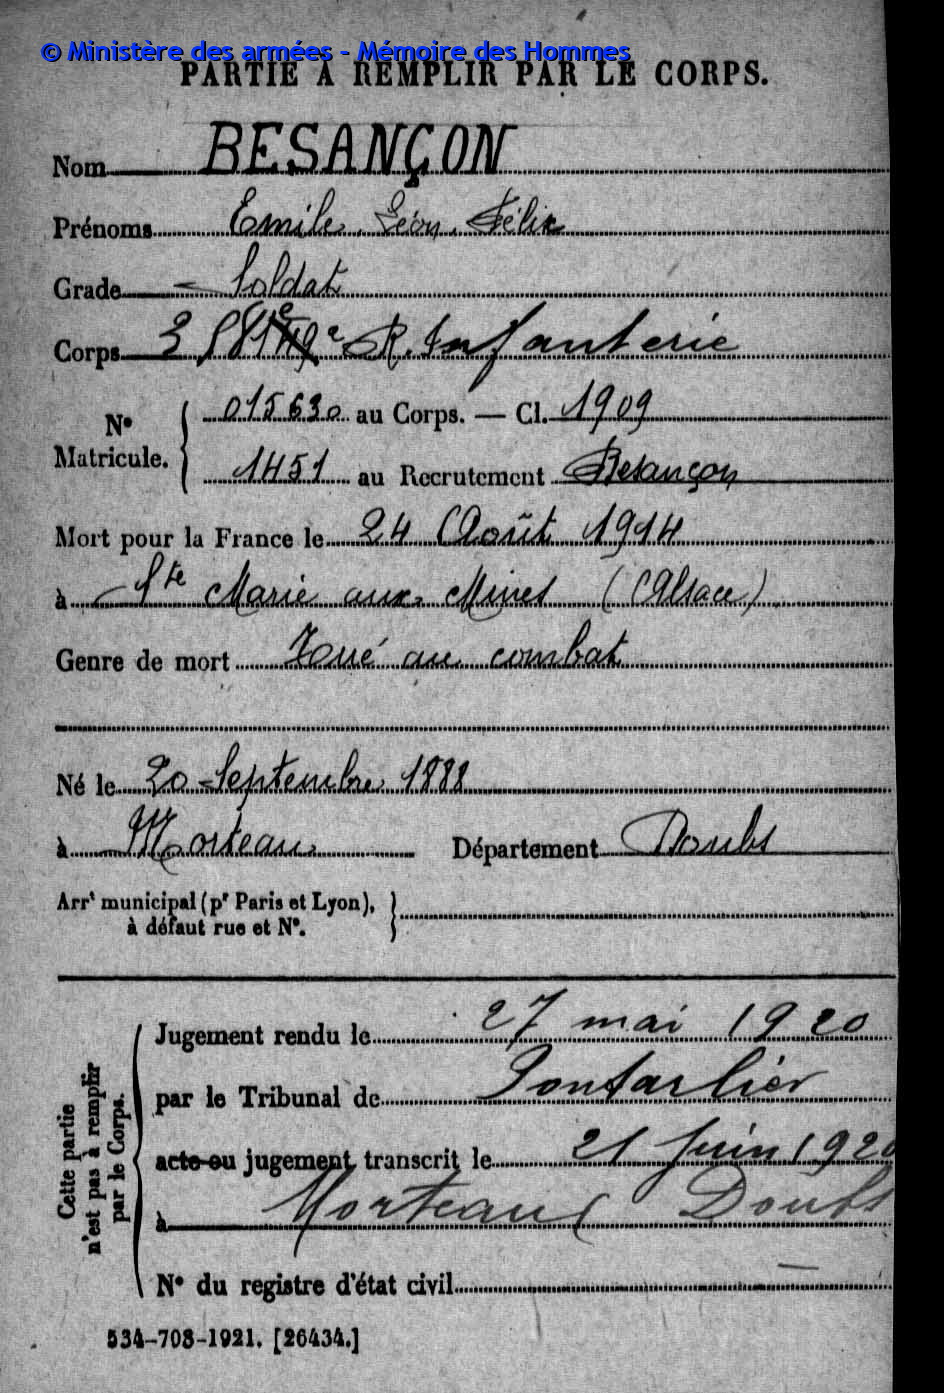 © Ministère des armées - Mémoire des Hommes
PARTIE À REMPLIR PAR LE CORPS.
Nom BESANÇON
Prénoms Emile Léon Félix
Grade Soldat
Corps R. Infanterie
N° Matricule. 015630 au Corps. — Cl. 1909
1451 au Recrutement Besançon
Mort pour la France le 24 Août 1914
à Ste Marie aux Mines (Alsace)
Genre de mort Tué au combat
Né le 20 Septembre 1888
à Morteau Département Doubs
Arrt municipal (pr Paris et Lyon),
à défaut rue et N°.
Cette partie
n'est pas à remplir
par le Corps.
Jugement rendu le 27 mai 1920
par le Tribunal de Pontarlier
acte ou jugement transcrit le 21 Juin 1920
à Morteau (Doubs
N° du registre d'état civil —
534-708-1921. [26434.]